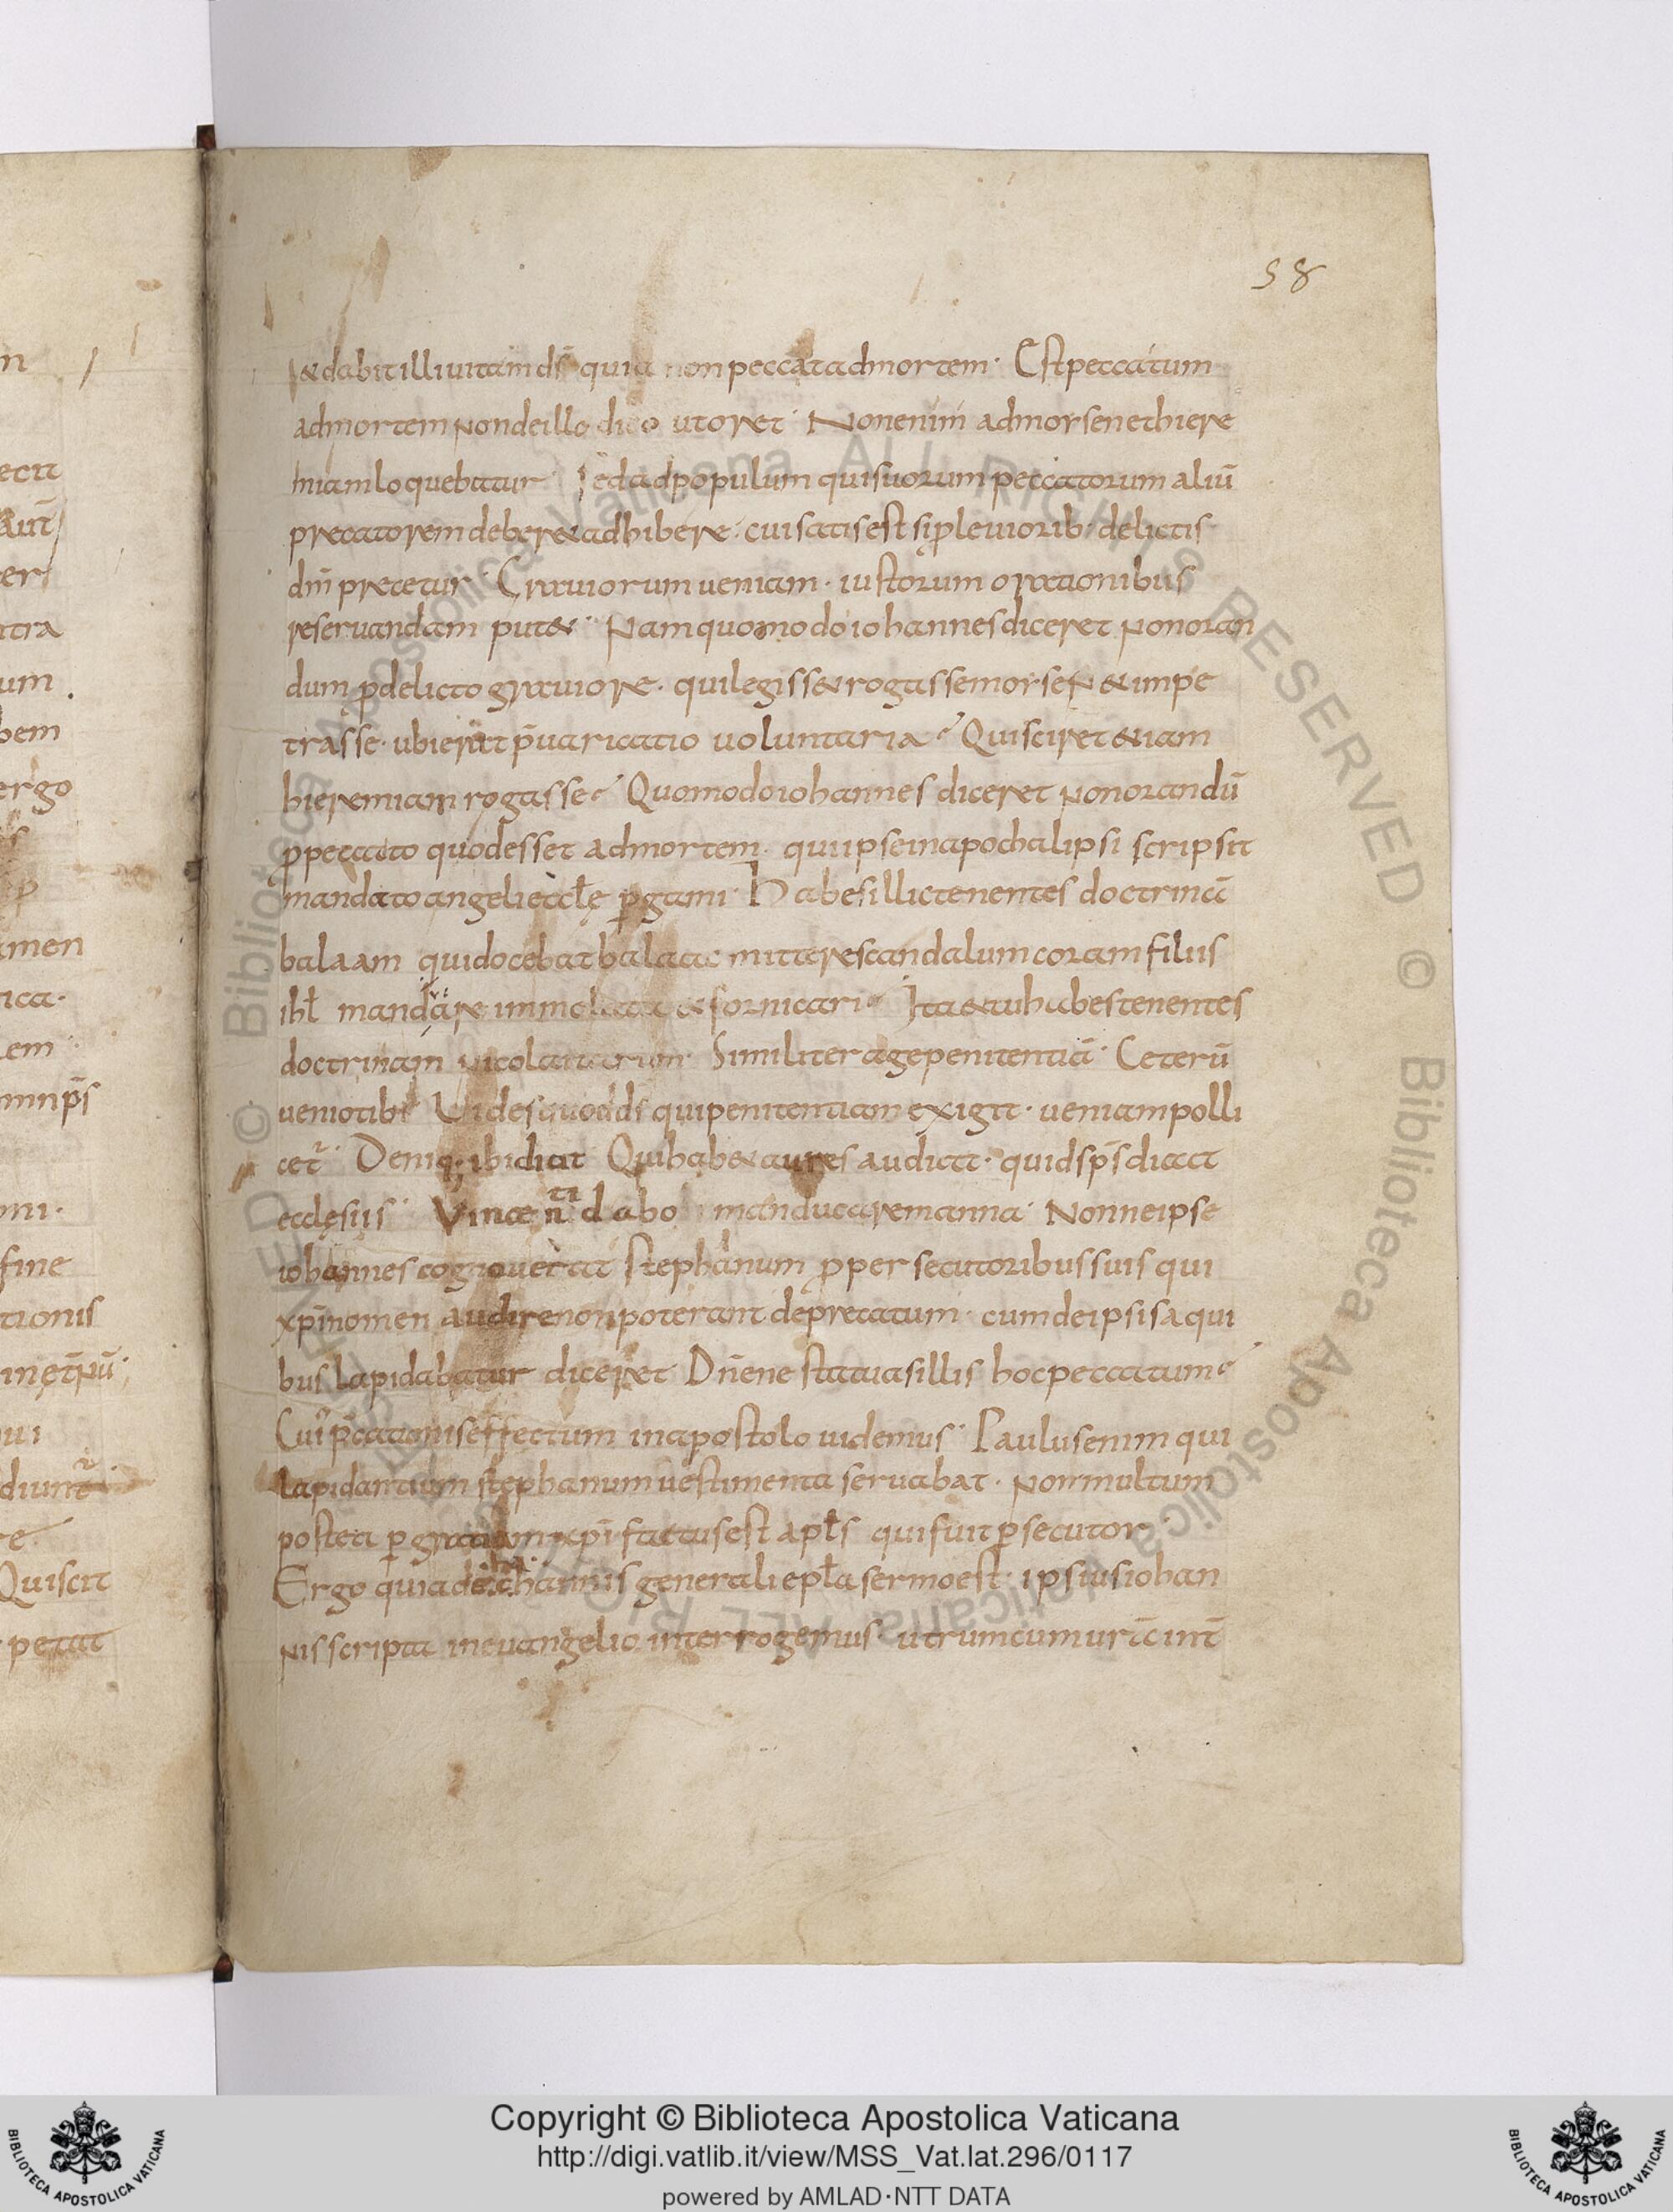 58
& dabit illi uitam d̄s quia non peccat ad mortem· Est peccatum
ad mortem non de illo dico ut oret· Non enim ad morsen et hiere
miam loquebatur· sed ad populum qui suorum peccatorum aliū
precatorem deber& adhibere· cui satis est si p̱ leuiorib; delictis
dn̄m precetur· Grauiorum ueniam· iustorum orationibus
reseruandam put&· Nam quomodo iohannes diceret non oran
dum p̱ delicto grauiore· qui legiss& rogasse morsen & impe
trasse· ubi erat p̄uaricatio uoluntaria? Qui scir& & iam
hieremiam rogasse? Quomodo iohannes diceret non orandū
p̱ peccato quod esset ad mortem· qui ipse in apochalipsi scripsit
mandato angeli eccłę p̱gami· Habes illic tenentes doctrinā
balaam qui docebat balaac mittere scandalum coram filiis
ihł mandare immolata & fornicari· Ita & tu habes tenentes
doctrinam nicolaitarum· Similiter age penitentiā· Ceterū
uenio tibi Uides quod d̄s qui penitentiam exigit· ueniam polli
cet᷑· Deniq; ibi dicit Qui hab& aures audiat· quid sp̄s dicat
ecclęsiis· Vincenti dabo manducare manna· Nonne ipse
iohannes cognouerat stephanum p̱ persecutoribus suis qui
xp̄i nomen audire non poterant deprecatum· cum de ipsis a qui
bus lapidabatur diceret Dn̄e ne statuas illis hoc peccatum?
Cui᷑ p̄cationis effectum in apostolo uidemus· Paulus enim qui
lapidantium stephanum uestimenta seruabat· non multum
postea p̱ gratiam xp̄i factus est apłs qui fuit p̱secutor·
Ergo quia de iohannis generali epła sermo est· ipsius iohan
nis scripta in euangelio interrogemus· utrum cum
Copyright © Biblioteca Apostolica Vaticana
http://digi.vatlib.it/view/MSS_Vat.lat.296/0117
powered by AMLAD·NTT DATA
BIBLIOTECA APOSTOLICA VATICANA
BIBLIOTECA APOSTOLICA VATICANA